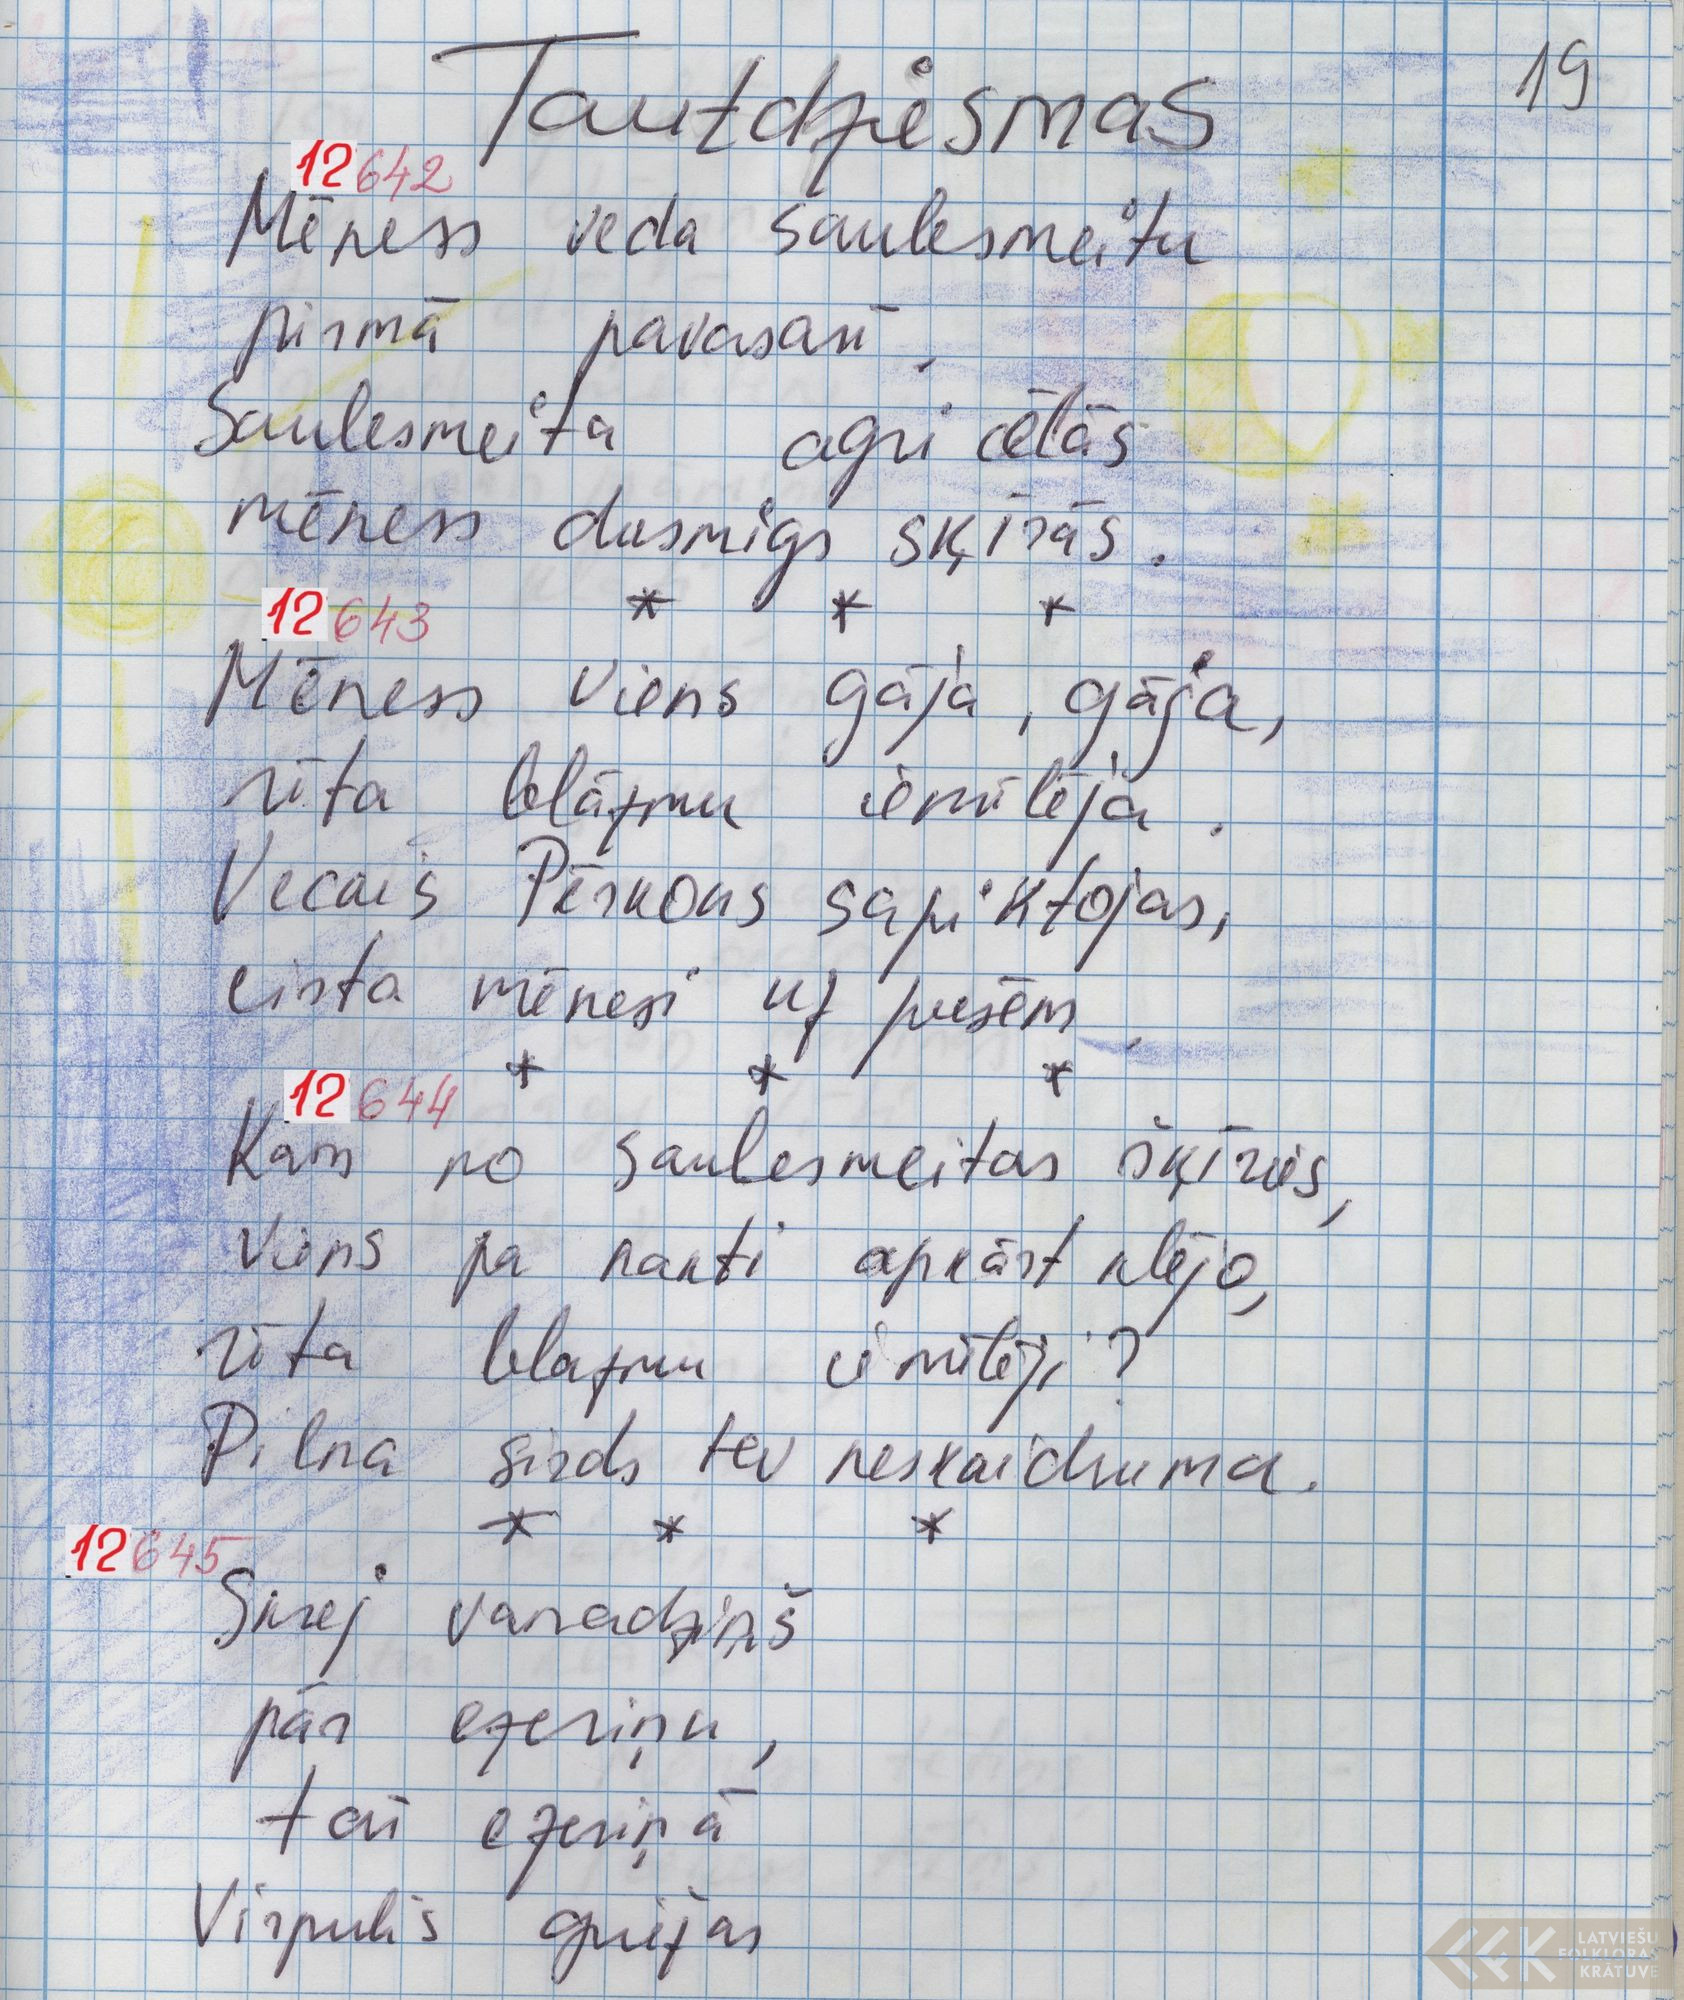 19
Tautdziesmas
12642
Mēness veda saulesmeitu
pirmā pavasarī,
Saulesmeita agri cēlās
mēness dusmīgs šķīrās.
* * *
12643
Mēness viens gāja, gāja,
rīta blāzmu iemīlēja.
Vecais Pērkons sapiktojas,
cirta mēnesi uz pusēm.
* * *
12644
Kam no saulesmeitas šķīries,
viens pa nakti apkārt klējo,
rīta blazmu iemīlēji?
Pilna sirds tev neskaidruma.
* * *
12645
Skrej vanadziņš
pār ezeriņu,
tai ezeriņā
Virpulis griežas
LATVIEŠU
FOLKLORAS
KRĀTUVE